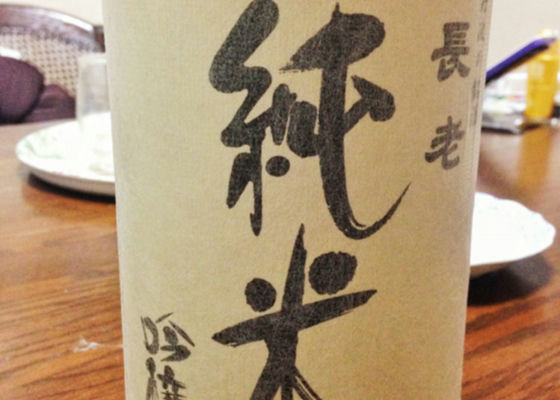 長老
純米
吟醸